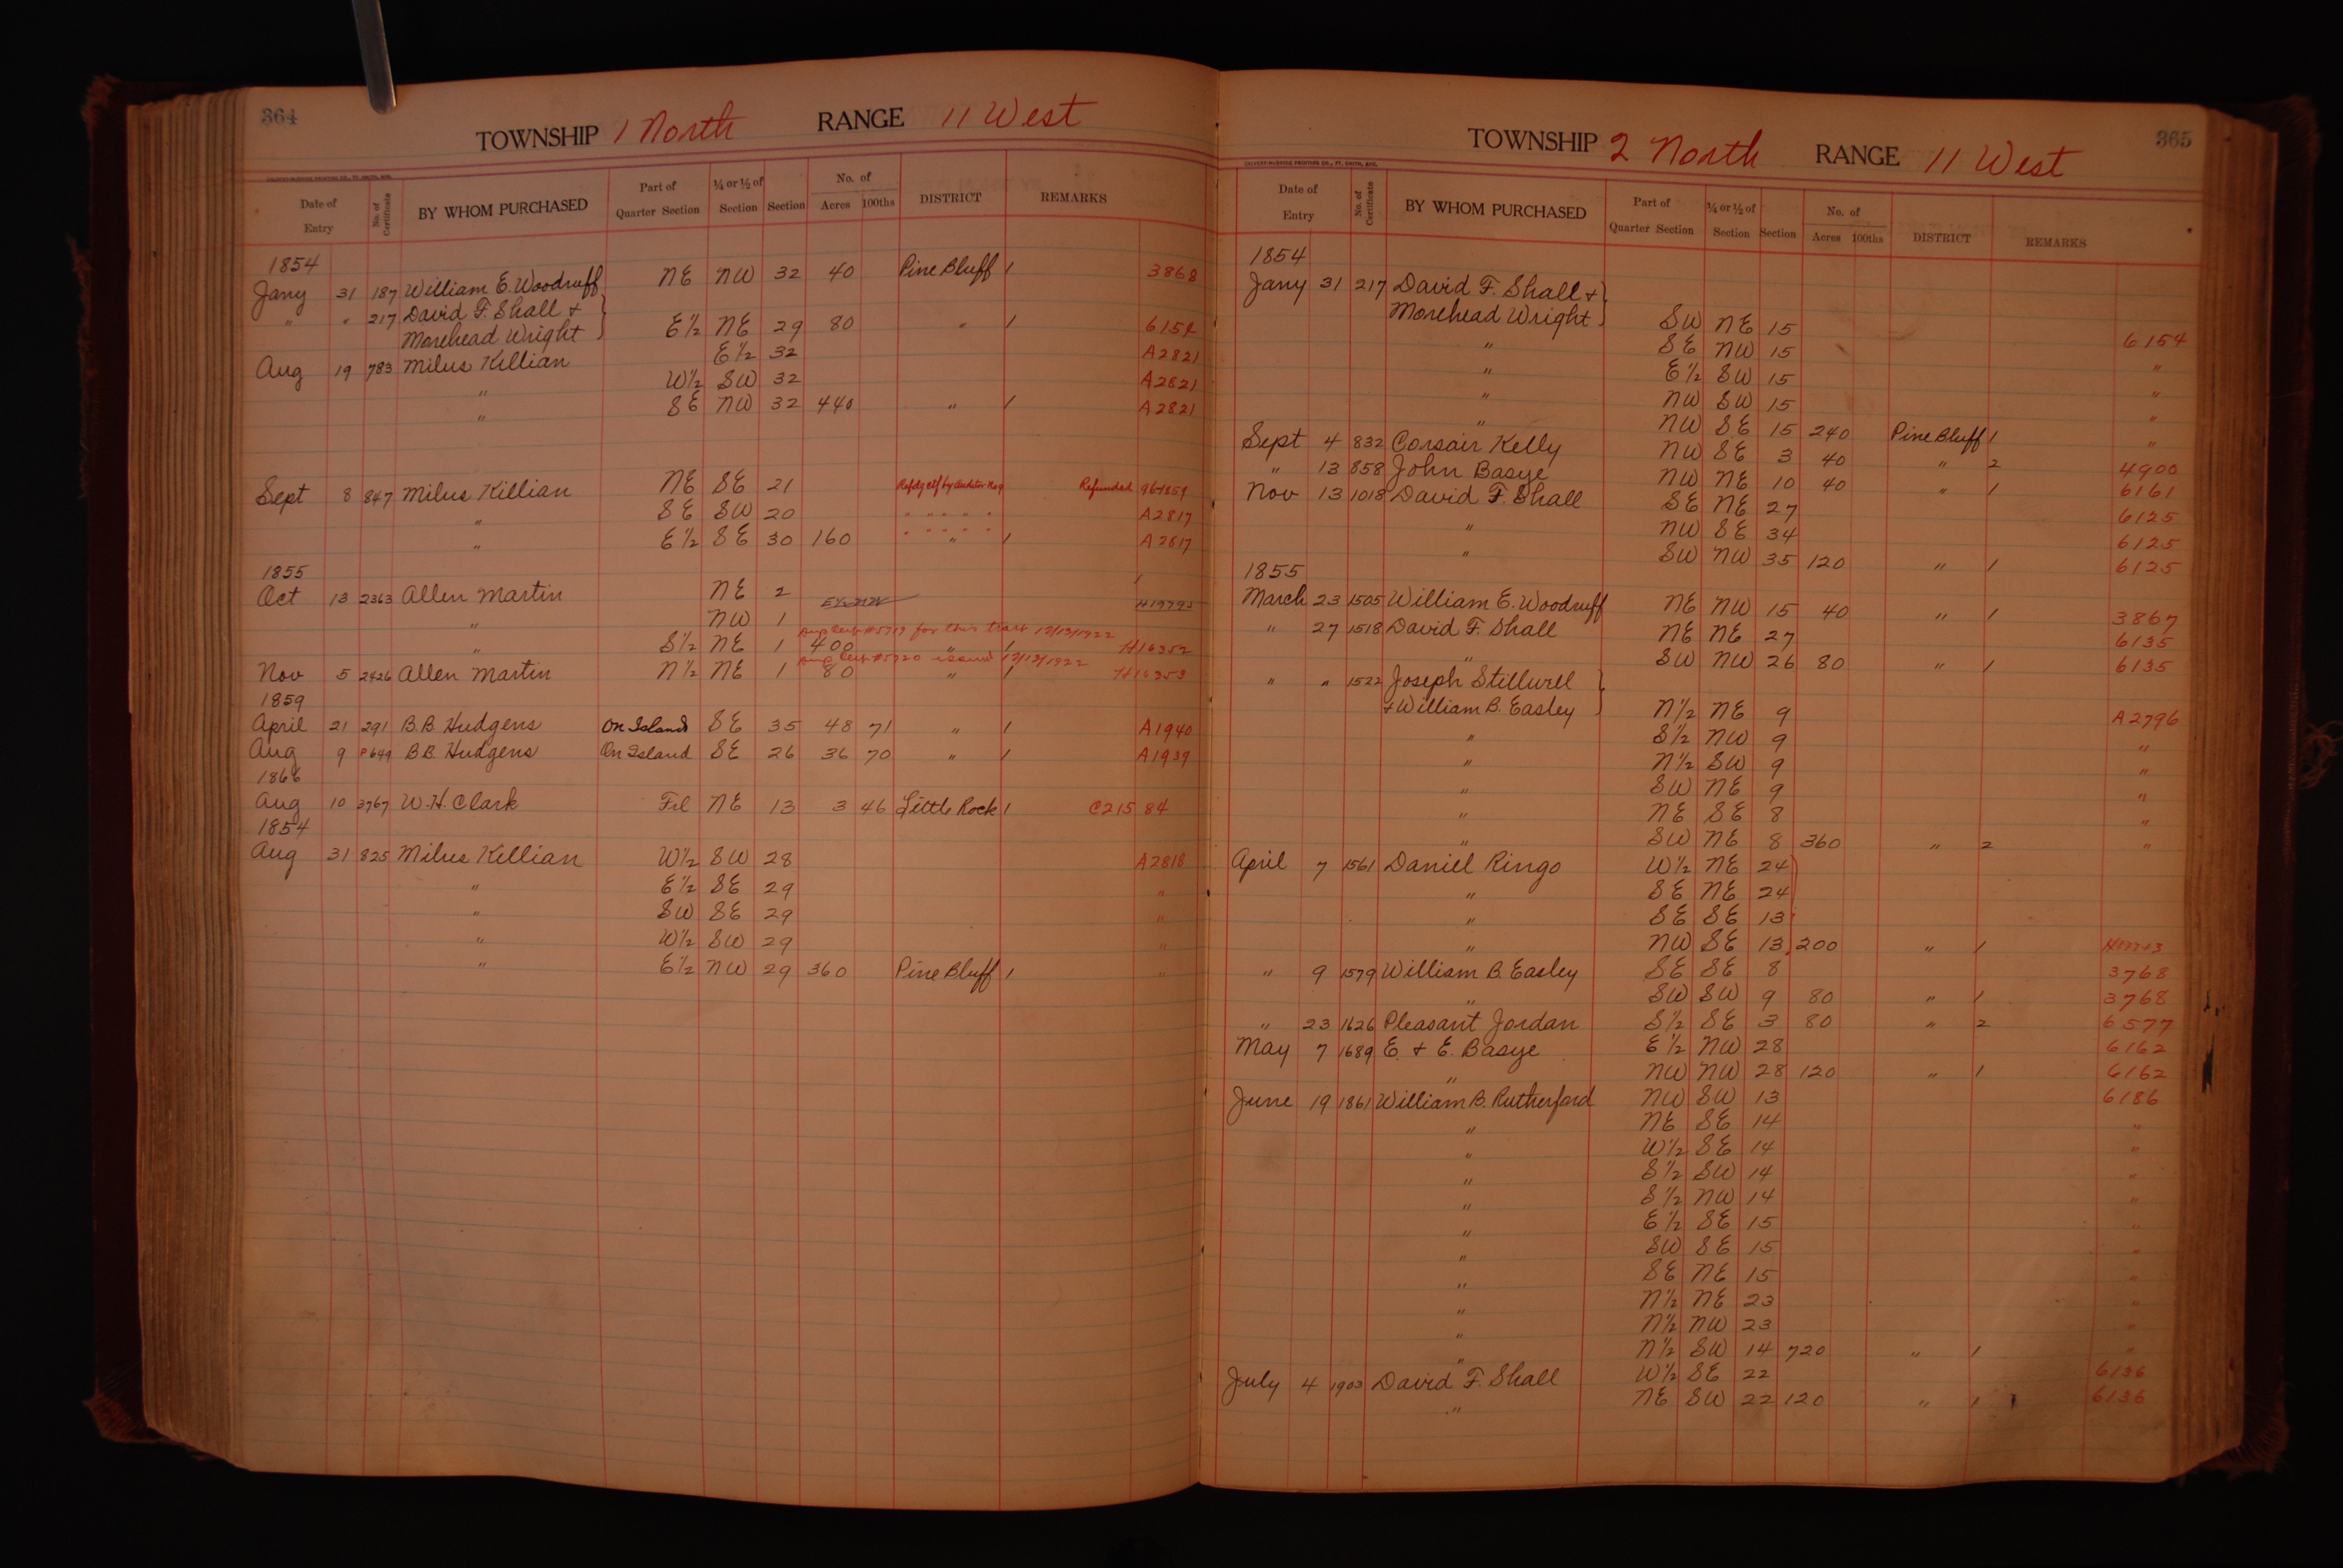 364
TOWNSHIP 1 North RANGE 11 West
CALVERT-McBRIDE PRINTING CO., FT. SMITH, ARK.
Date of Entry | No. of Certificate | BY WHOM PURCHASED | Part of Quarter Section | ¼ or ½ of Section | Section | No. of Acres 100ths | DISTRICT | REMARKS
1854
Jany 31 187 William E. Woodruff NE NW 32 40 Pine Bluff 1 3868
" " 217 David F. Shall +
Morehead Wright } E½ NE 29 80 " 1 6154
Aug 19 783 Milus Killian E½ 32 A2821
" W½ SW 32 A2821
" SE NW 32 440 " 1 A2821
Sept 8 847 Milus Killian NE SE 21 Refdg ctf by Auditor No 9 Refunded
" SE SW 20 " " " " " A2817
" E½ SE 30 160 " " " " " " 1 A2817
1855
Oct 13 2363 Allen Martin NE 2
" NW 1
Dup Cert #5719 for this tract 12/13/1922
" S½ NE 1 400 " 1 H16352
Dup Cert #5720 issued 12/13/1922
Nov 5 2426 Allen Martin N½ NE 1 80 " 1 H16353
1859
April 21 291 B.B. Hudgens On Island SE 35 48 71 " 1 A1940
Aug 9 P649 B.B. Hudgens On Island SE 26 36 70 " 1 A1939
1866
Aug 10 3767 W.H. Clark Frl NE 13 3 46 Little Rock 1 C215 84
1854
Aug 31 825 Milus Killian W½ SW 28 A2818
" E½ SE 29 "
" SW SE 29 "
" W½ SW 29 "
" E½ NW 29 360 Pine Bluff 1 "
365
TOWNSHIP 2 North RANGE 11 West
CALVERT-McBRIDE PRINTING CO., FT. SMITH, ARK.
Date of Entry | No. of Certificate | BY WHOM PURCHASED | Part of Quarter Section | ¼ or ½ of Section | Section | No. of Acres 100ths | DISTRICT | REMARKS
1854
Jany 31 217 David F. Shall +
Morehead Wright } SW NE 15 6154
" SE NW 15 "
" E½ SW 15 "
" NW SW 15 "
" NW SE 15 240 Pine Bluff 1 "
Sept 4 832 Corsair Kelly NW SE 3 40 " 2 4900
" 13 858 John Basye NW NE 10 40 " 1 6161
Nov 13 1018 David F. Shall SE NE 27 6125
" NW SE 34 6125
" SW NW 35 120 " 1 6125
1855
March 23 1505 William E. Woodruff NE NW 15 40 " 1 3867
" 27 1518 David F. Shall NE NE 27 6135
" SW NW 26 80 " 1 6135
" " 1522 Joseph Stillwell
+ William B. Easley } N½ NE 9 A2796
" S½ NW 9 "
" N½ SW 9 "
" SW NE 9 "
" NE SE 8 "
" SW NE 8 360 " 2 "
April 7 1561 Daniel Ringo W½ NE 24
" SE NE 24
" SE SE 13
" NW SE 13 200 " 1
" 9 1579 William B. Easley SE SE 8 3768
" SW SW 9 80 " 1 3768
" 23 1626 Pleasant Jordan S½ SE 3 80 " 2 6577
May 7 1689 E. + E. Basye E½ NW 28 6162
" NW NW 28 120 " 1 6162
June 19 1861 William B. Rutherford NW SW 13 6186
" NE SE 14 "
" W½ SE 14 "
" S½ SW 14 "
" S½ NW 14 "
" E½ SE 15 "
" SW SE 15 "
" SE NE 15 "
" N½ NE 23 "
" N½ NW 23 "
" N½ SW 14 720 " 1 "
July 4 1903 David F. Shall W½ SE 22 6136
" NE SW 22 120 " 1 6136